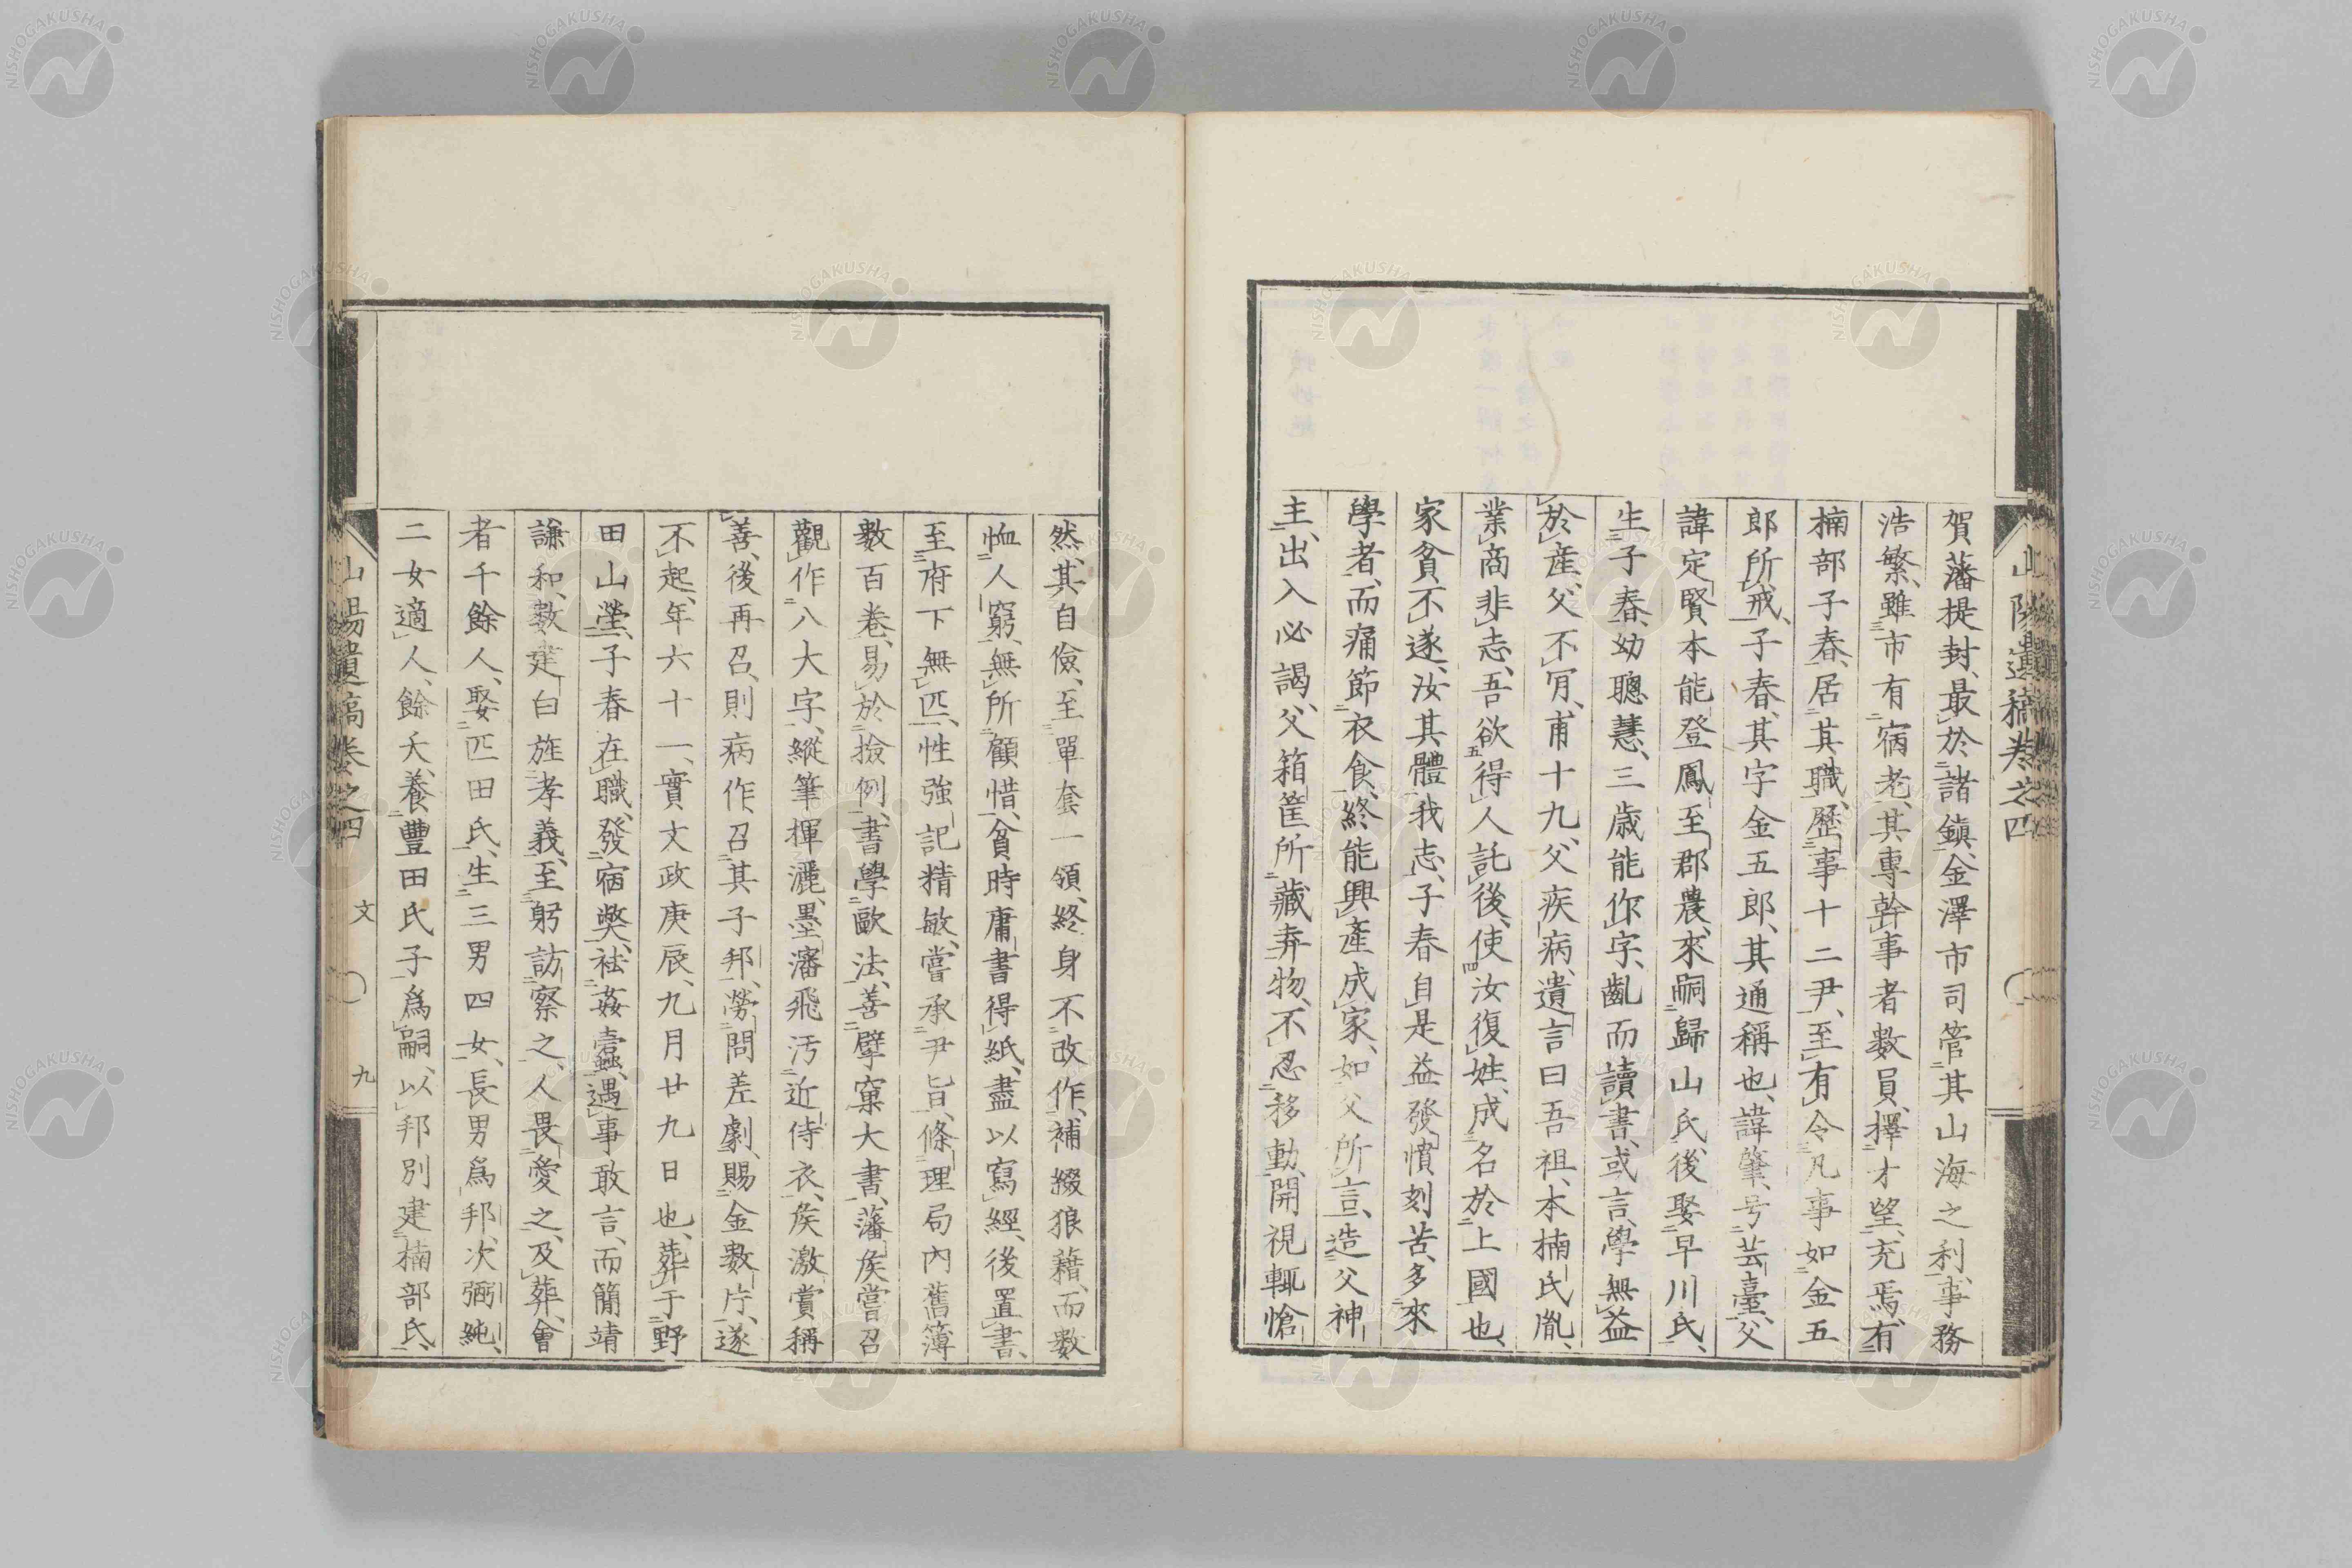 賀藩提封、最於諸鎮、金澤市司管其山海之利、事務
浩繁、雖市有宿老、其專幹事者數員、擇才望充焉、有
楠部子春、居其職、歷事十二尹、至有令凡事如金五
郎所戒、子春、其字金五郎、其通稱也、諱肇、号芸臺、父
諱定賢、本能登鳳至郡農、來嗣歸山氏、後娶早川氏、
生子春、幼聰慧、三歲能作字、齔而讀書、或言學無益
於產、父不肎、甫十九、父疾病、遺言曰吾祖、本楠氏胤、
業商非志、吾欲得人託後、使汝復姓、成名於上國也、
家貧不遂、汝其體我志、子春自是益發憤刻苦、多來
學者、而痛節衣食、終能興產成家、如父所言、造父神
主、出入必謁、父箱筐所藏弆物、不忍移動、開視輒愴
山陽遺稿卷之四
然、其自儉、至單套一領、終身不改作、補綴狼藉、而數
恤人窮、無所顧惜、貧時庸書得紙、盡以寫經、後置書、
至府下無匹、性強記精敏、嘗承尹旨、條理局內舊簿
數百卷、易於撿例、書學歐法、善擘窠大書、藩矦嘗召
觀作八大字、縱筆揮灑、墨瀋飛汚近侍衣、矦激賞稱
善、後再召、則病作、召其子邦、勞問差劇、賜金數片、遂
不起、年六十一、實文政庚辰、九月廿九日也、葬于野
田山塋、子春在職、發宿獘、祛姦蠹、遇事敢言、而簡靖
謙和、數建白旌孝義、至躬訪察之、人畏愛之、及葬、會
者千餘人、娶匹田氏、生三男四女、長男爲邦、次弼純、
二女適人、餘夭、養豐田氏子爲嗣、以邦別建楠部氏、
山陽遺稿卷之四 文 九
NISHOGAKUSHA